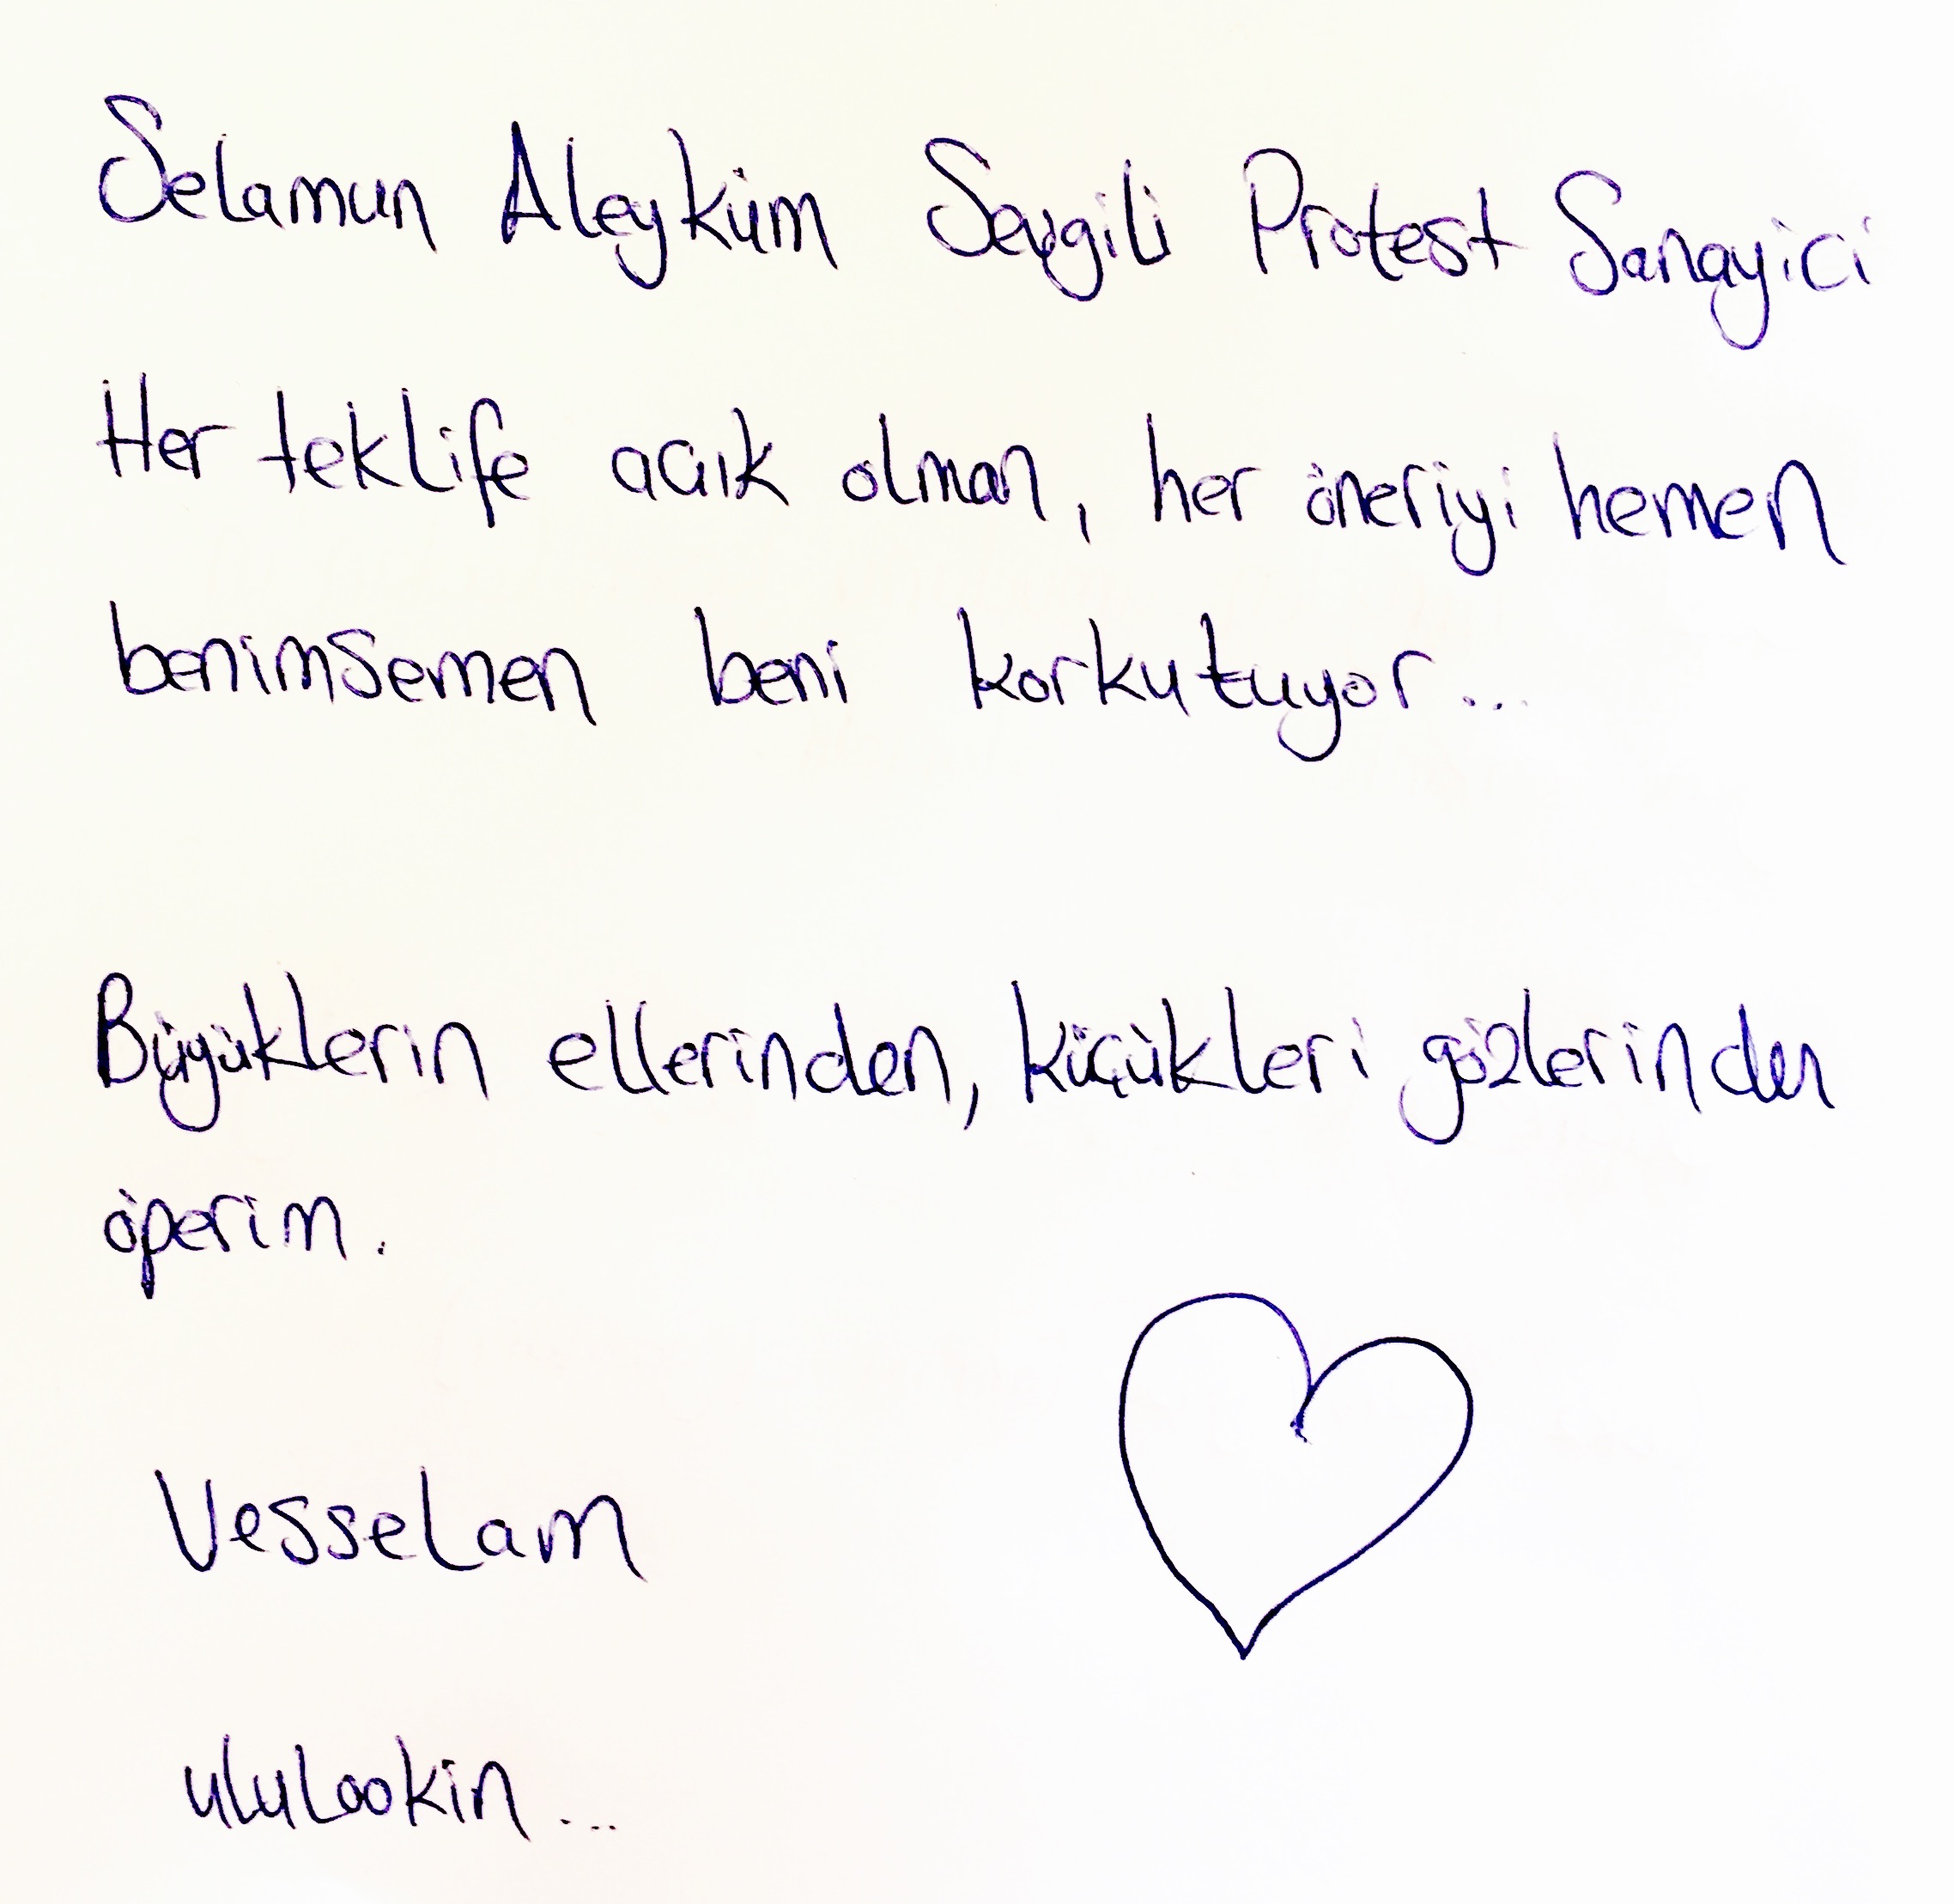 Selamun Aleyküm Sevgili Protest Sanayici
Her teklife açık olman, her öneriyi hemen
benimsemen beni korkutuyor...
Büyüklerin ellerinden, küçükleri gözlerinden
öperim.
Vesselam
ululookin...